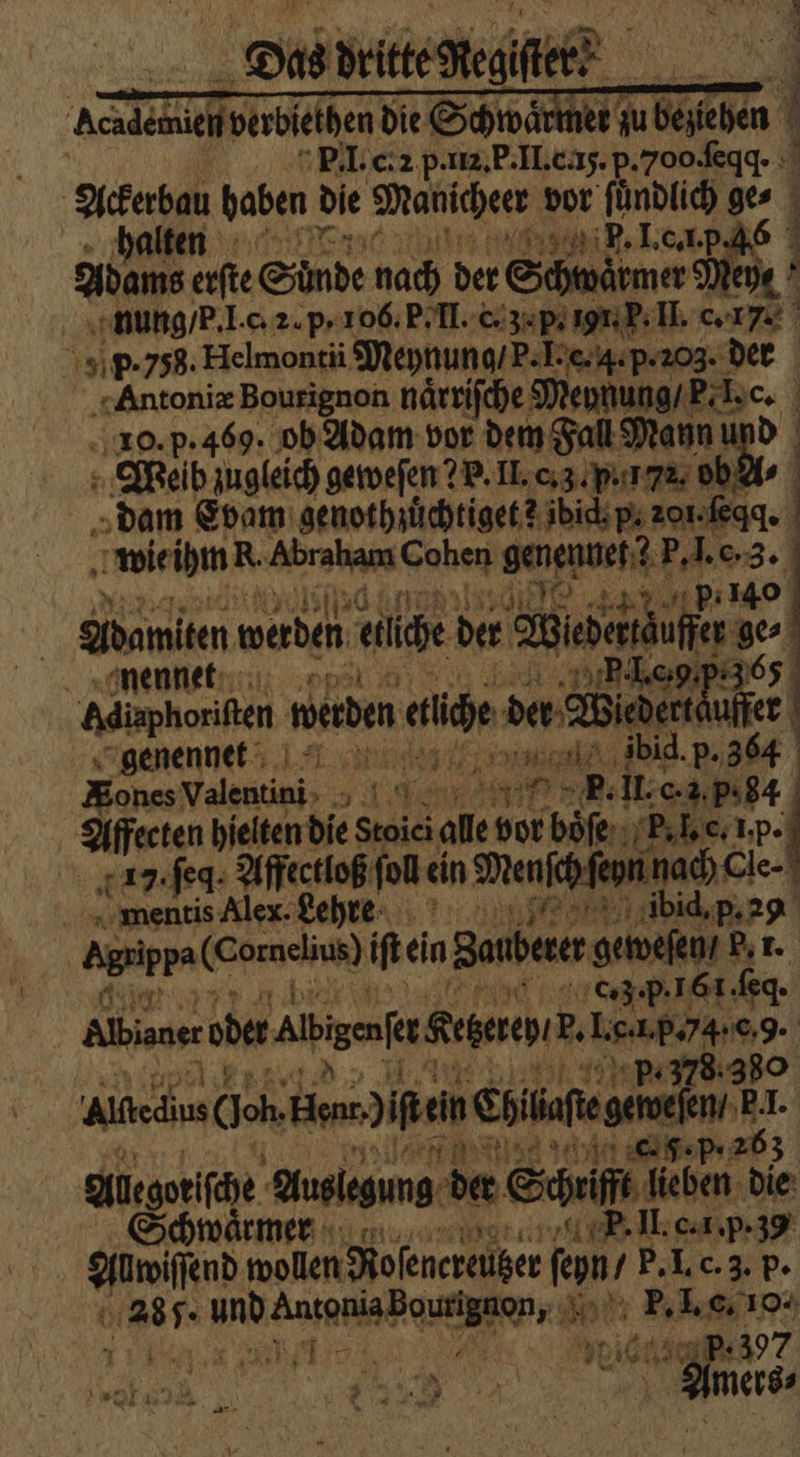 Das dritte Regiſter.
Academien verbiethen die Schwaͤrmer zu beziehen
P.I. c. 2. p. 112. P. II. c. 15. p. 700. ſeqq.
Ackerbau haben die Manicheer vor ſuͤndlich ge⸗
halten P. I. c. 1. p. 46
Adams erſte Suͤnde nach der Schwaͤrmer Mey⸗
nung/ P. I. c. 2. p. 106. P. II. c. 3. p. 191. P. II. c. 17.
p. 758. Helmontii Meynung/ P. I. c. 4. p. 203. der
Antoniæ Bourignon naͤrriſche Meynung/ P. I. c.
10. p. 469. ob Adam vor dem Fall Mann und
Weib zugleich geweſen? P. II. c. 3. p. 172. ob A⸗
dam Evam genothzuͤchtiget? ibid. p. 201. ſeqq.
wie ihm R. Abraham Cohen genennet? P. I. c. 3.
p. 140
Adamiten werden etliche der Wiedertaͤuffer ge⸗
nennet P. I. c. 9. p. 365
Adiaphoriſten werden etliche der Wiedertaͤuffer
genennet ibid. p. 364
Æones Valentini P. II. c. 2. p. 84
Affecten hielten die Stoici alle vor boͤſe P. I. c. 1. p.
17. ſeq. Affectloß ſoll ein Menſch ſeyn nach Cle-
mentis Alex. Lehre ibid. p. 29
Agrippa (Cornelius) iſt ein Zauberer geweſen/ P. 1.
c. 3. p. 161. ſeq.
Albianer oder Albigenſer Ketzerey/ P. I. c. 1. p. 74. c. 9.
p. 378. 380
Alſtedius (Joh. Henr.) iſt ein Chiliaſte geweſen/ P. I.
c. 5. p. 263
Allegoriſche Auslegung der Schrifft lieben die
Schwaͤrmer P. II. c. 1. p. 39
Allwiſſend wollen Roſencreutzer ſeyn/ P. I. c. 3. p.
285. und Antonia Bourignon, P. I. c. 10.
p. 397
Amers⸗